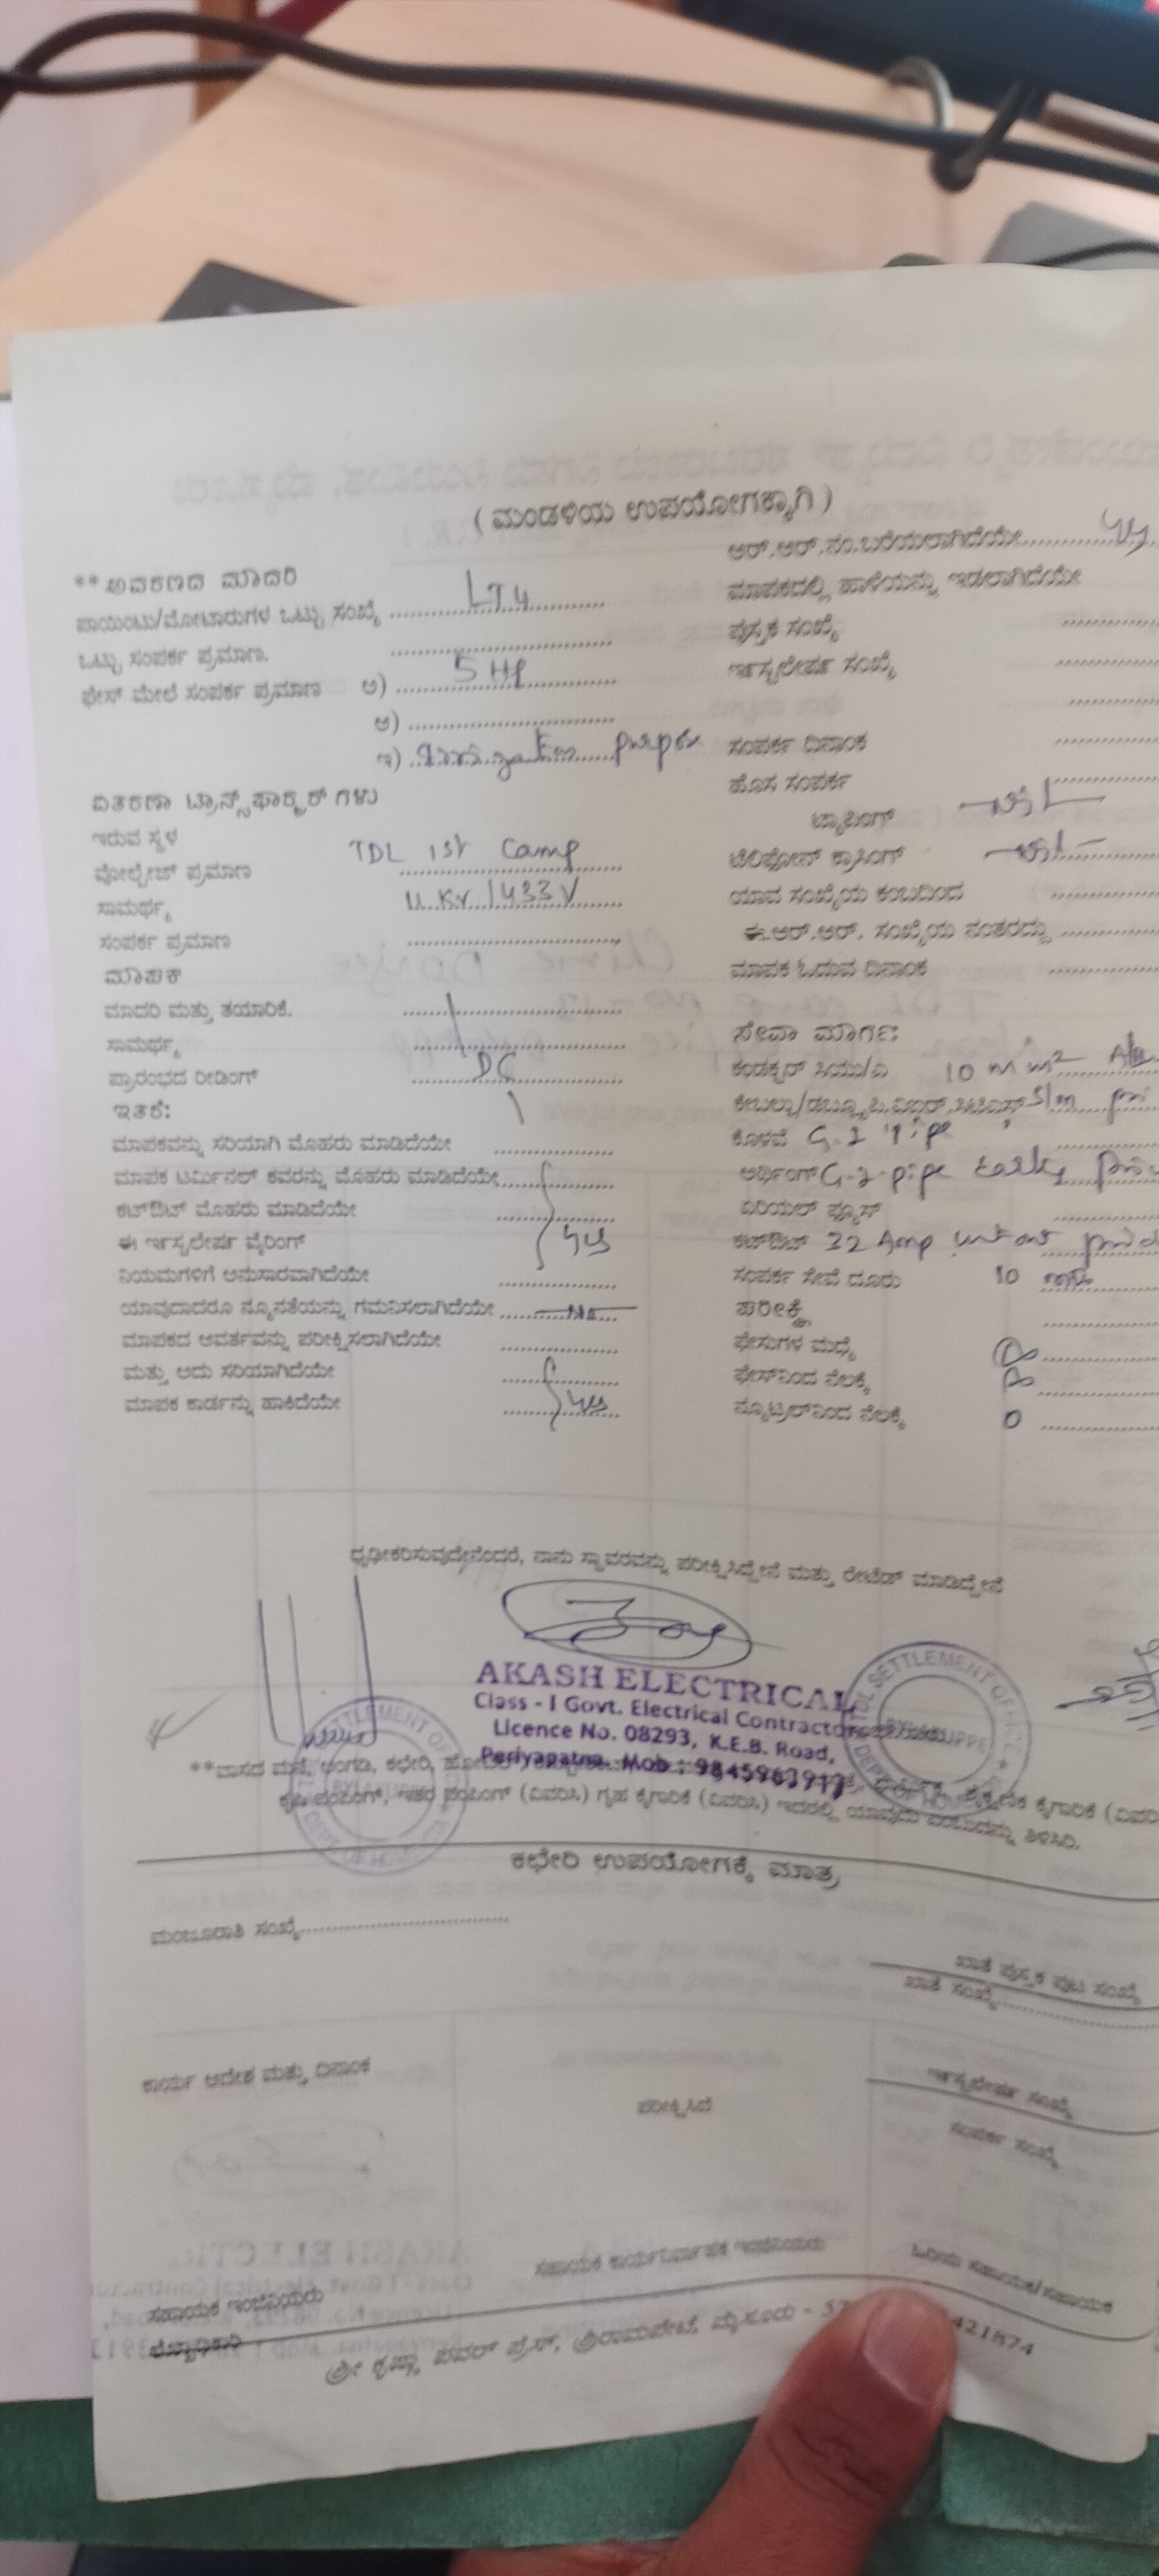 ( ಮಂಡಳಿಯ ಉಪಯೋಗಕ್ಕಾಗಿ )
**ಅವರಣದ ಮಾದರಿ
ಪಾಯಿಂಟು/ಮೋಟಾರುಗಳ ಒಟ್ಟು ಸಂಖ್ಯೆ LT4
ಒಟ್ಟು ಸಂಪರ್ಕ ಪ್ರಮಾಣ.
ಫೇಸ್ ಮೇಲೆ ಸಂಪರ್ಕ ಪ್ರಮಾಣ ಅ) 5 HP
ಆ)
ಇ)
ವಿತರಣಾ ಟ್ರಾನ್ಸ್‌ಫಾರ್ಮರ್ ಗಳು
ಇರುವ ಸ್ಥಳ
ವೋಲ್ಟೇಜ್ ಪ್ರಮಾಣ TDL 1st Camp
ಸಾಮರ್ಥ್ಯ 11 KV / 433 V
ಸಂಪರ್ಕ ಪ್ರಮಾಣ
ಮಾಪಕ
ಮಾದರಿ ಮತ್ತು ತಯಾರಿಕೆ.
ಸಾಮರ್ಥ್ಯ
ಪ್ರಾರಂಭದ ರೀಡಿಂಗ್ DC
ಇತರೆ:
ಮಾಪಕವನ್ನು ಸರಿಯಾಗಿ ಮೊಹರು ಮಾಡಿದೆಯೇ
ಮಾಪಕ ಟರ್ಮಿನಲ್ ಕವರನ್ನು ಮೊಹರು ಮಾಡಿದೆಯೇ
ಕಟ್‌ಔಟ್ ಮೊಹರು ಮಾಡಿದೆಯೇ
ಈ ಇನ್ಸ್ಟಲೇಷನ ವೈರಿಂಗ್ yes
ನಿಯಮಗಳಿಗೆ ಅನುಸಾರವಾಗಿದೆಯೇ
ಯಾವುದಾದರೂ ನ್ಯೂನತೆಯನ್ನು ಗಮನಿಸಲಾಗಿದೆಯೇ No
ಮಾಪಕದ ಆವರ್ತವನ್ನು ಪರೀಕ್ಷಿಸಲಾಗಿದೆಯೇ
ಮತ್ತು ಅದು ಸರಿಯಾಗಿದೆಯೇ
ಮಾಪಕ ಕಾರ್ಡನ್ನು ಹಾಕಿದೆಯೇ yes
ಆರ್.ಆರ್.ನಂ.ಬರೆಯಲಾಗಿದೆಯೇ
ಮಾಪಕದಲ್ಲಿ ಹಾಳೆಯನ್ನು ಇಡಲಾಗಿದೆಯೇ
ಪುಸ್ತಕ ಸಂಖ್ಯೆ
ಇನ್ಸ್ಟಲೇಷನ ಸಂಖ್ಯೆ
ಸಂಪರ್ಕ ದಿನಾಂಕ
ಹೊಸ ಸಂಪರ್ಕ
ಟ್ಯಾಪಿಂಗ್
ಟೆಲಿಫೋನ್ ಕ್ರಾಸಿಂಗ್
ಯಾವ ಸಂಖ್ಯೆಯ ಕಂಬದಿಂದ
ಈ.ಆರ್.ಆರ್. ಸಂಖ್ಯೆಯ ನಂತರದ್ದು
ಮಾಪಕ ಓದುವ ದಿನಾಂಕ
ಸೇವಾ ಮಾರ್ಗ:
ಕಂಡಕ್ಟರ್ ಸಿಯು/ಎ 10 m m²
ಕೊಳವೆ G.I pipe
ಅರ್ಥಿಂಗ್ G.I pipe
ಏರಿಯಲ್ ಫ್ಯೂಸ್
ಕಟ್‌ಔಟ್ 32 Amp
ಸಂಪರ್ಕ ಸೇವೆ ದೂರು 10
ಪರೀಕ್ಷೆ
ಫೇಸುಗಳ ಮಧ್ಯೆ
ಫೇಸ್‌ನಿಂದ ನೆಲಕ್ಕೆ
ನ್ಯೂಟ್ರಲ್‌ನಿಂದ ನೆಲಕ್ಕೆ 0
ಧೃಢೀಕರಿಸುವುದೇನೆಂದರೆ, ನಾನು ಸ್ಥಾವರವನ್ನು ಪರೀಕ್ಷಿಸಿದ್ದೇನೆ ಮತ್ತು ರೇಟೆಡ್ ಮಾಡಿದ್ದೇನೆ
AKASH ELECTRICAL
Class - I Govt. Electrical Contractor
Licence No. 08293, K.E.B. Road,
Periyapatna. Mob : 9845963913
SETTLEMENT OFFICE
BYLAKUPPE
**ವಾಸದ ಮನೆ, ಅಂಗಡಿ, ಕಛೇರಿ,
ಕೃಷಿ ಪಂಪಿಂಗ್, ಇತರ ಪಂಪಿಂಗ್ (ವಿವರಿಸಿ) ಗೃಹ ಕೈಗಾರಿಕೆ (ವಿವರಿಸಿ) ಇದರಲ್ಲಿ ಯಾವುದು ಎಂಬುದನ್ನು ತಿಳಿಸಿರಿ.
ಕಛೇರಿ ಉಪಯೋಗಕ್ಕೆ ಮಾತ್ರ
ಮಂಜೂರಾತಿ ಸಂಖ್ಯೆ
ಖಾತೆ ಪುಸ್ತಕ ಪುಟ ಸಂಖ್ಯೆ
ಖಾತೆ ಸಂಖ್ಯೆ
ಕಾರ್ಯ ಆದೇಶ ಮತ್ತು ದಿನಾಂಕ
ಪರೀಕ್ಷಿಸಿದೆ
ಇನ್ಸ್ಟಲೇಷನ ಸಂಖ್ಯೆ
ಸಂಪರ್ಕ ಸಂಖ್ಯೆ
ಸಹಾಯಕ ಇಂಜಿನಿಯರು
ಸಹಾಯಕ ಕಾರ್ಯನಿರ್ವಾಹಕ ಇಂಜಿನಿಯರು
ಹಿರಿಯ ಸಹಾಯಕ/ಸಹಾಯಕ
ಲೆಕ್ಕಾಧಿಕಾರಿ
ಶ್ರೀ ಕೃಷ್ಣಾ ಪವರ್ ಪ್ರೆಸ್, ಶ್ರೀರಾಮಪೇಟೆ, ಮೈಸೂರು - 57 421874